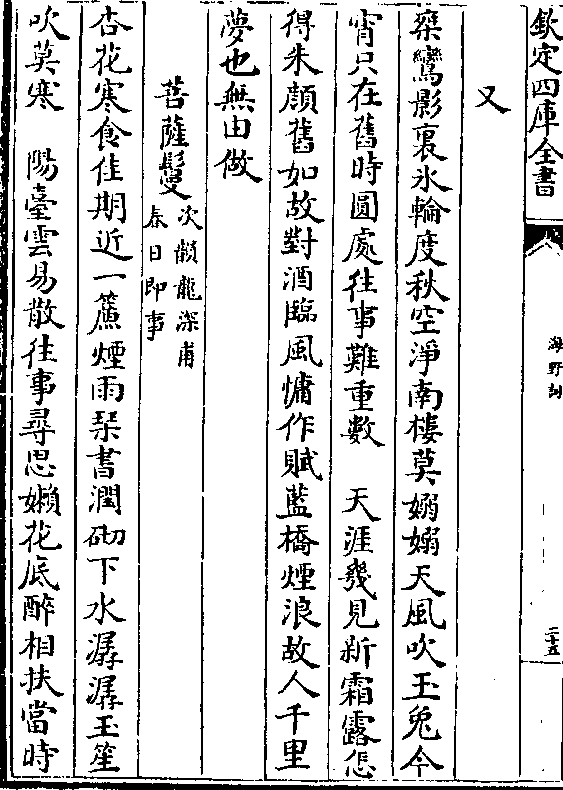 欽定四庫全書
海野詞
二十五
又
桑鸞影裏氷輪度秋空淨南樓莫嫋嫋天風吹玉兎今
宵只在舊時圓處往事難重數　天涯幾見新霜露怎
得朱顔舊如故對酒臨風慵作賦藍橋煙浪故人千里
夢也無由做
菩薩鬘
次韻龍深甫
春日即事
杏花寒食佳期近一簾煙雨琴書潤砌下水潺潺玉笙
吹莫寒　陽臺雲易散往事尋思嬾花底醉相扶當時